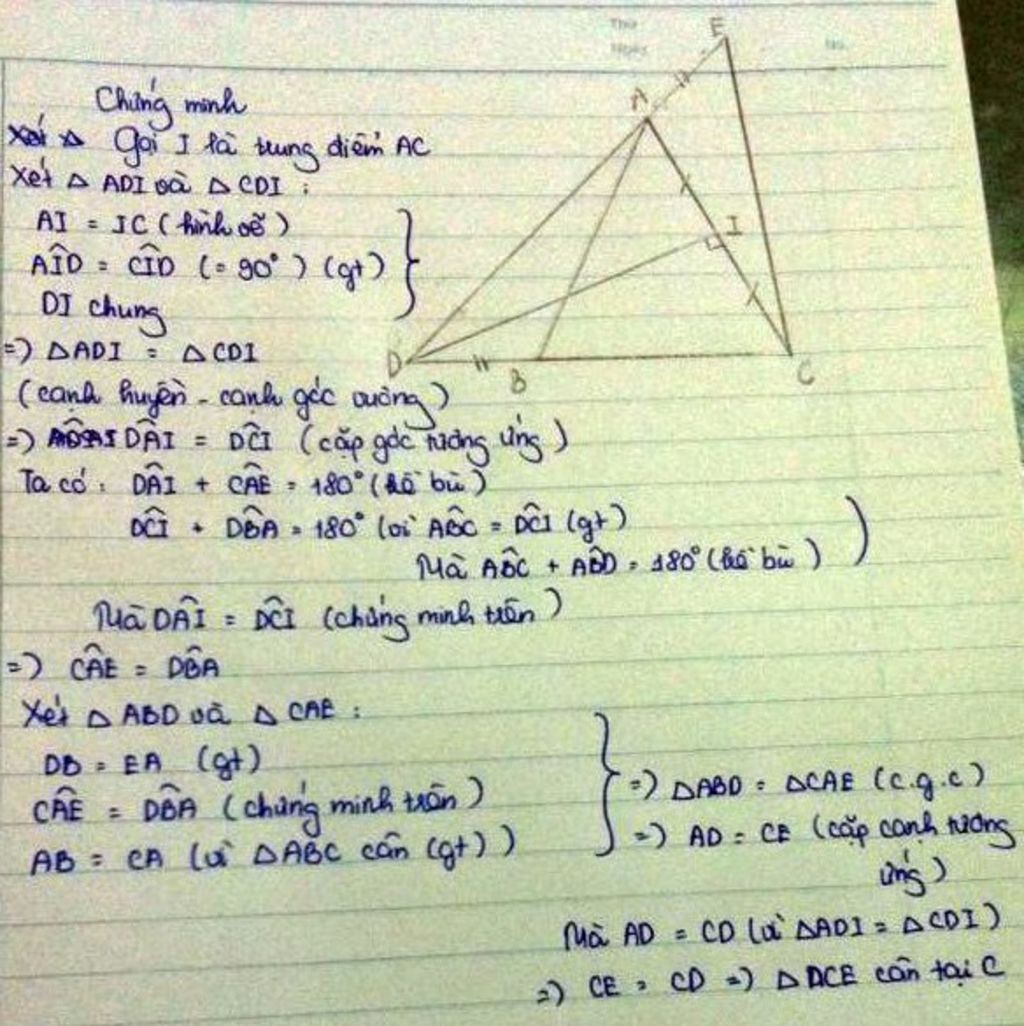 Thứ
Ngày
No.
E
A
I
D
B
C
Chứng minh
Xét △ Gọi I là trung điểm AC
Xét △ ADI và △ CDI :
AI = IC (hình vẽ)
AÎD = CÎD (= 90°) (gt)
DI chung
=) △ADI = △CDI
(cạnh huyền - cạnh góc vuông)
=) DÂI = DĈI (cặp góc tương ứng)
Ta có : DÂI + CÂE = 180° (kề bù)
DĈI + DB̂A = 180° (vì AB̂C = DĈI (gt)
Mà AB̂C + AB̂D = 180° (kề bù) )
Mà DÂI = DĈI (chứng minh trên)
=) CÂE = DB̂A
Xét △ ABD và △ CAE :
DB = EA (gt)
CÂE = DB̂A (chứng minh trên)
AB = CA (vì △ABC cân (gt))
=) △ABD = △CAE (c.g.c)
=) AD = CE (cặp cạnh tương
ứng)
Mà AD = CD (vì △ADI = △CDI)
=) CE = CD =) △DCE cân tại C